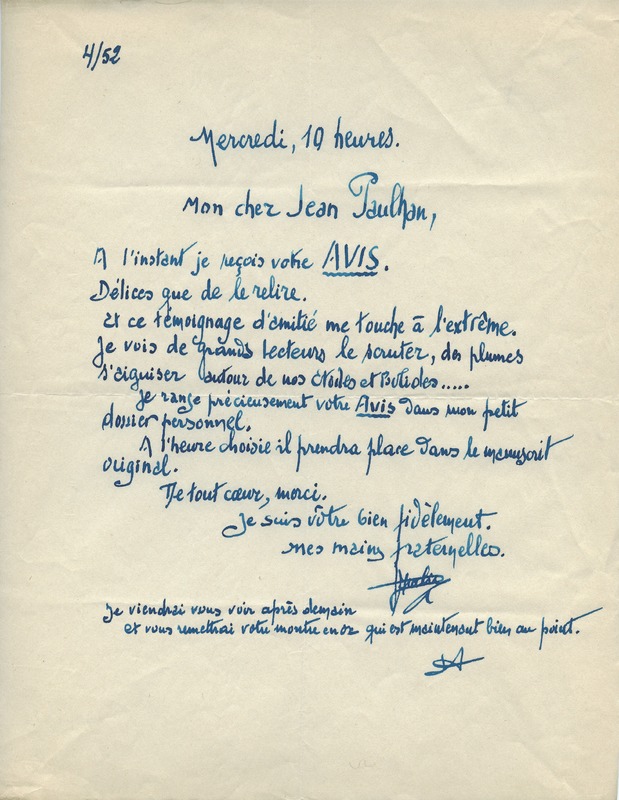 4/52
Mercredi, 10 heures.
Mon cher Jean Paulhan,
A l'instant je reçois votre AVIS.
Délices que de le relire.
Et ce témoignage d'amitié me touche à l'extrême.
Je vois de grands lecteurs le scruter, des plumes
s'aiguiser autour de nos Etoiles et Bolides.....
Je range précieusement votre Avis dans mon petit
dossier personnel.
A l'heure choisie il prendra place dans le manuscrit
original.
De tout cœur, merci.
Je suis vôtre bien fidèlement.
mes mains fraternelles.
Je viendrai vous voir après demain
et vous remettrai votre montre en or qui est maintenant bien au point.